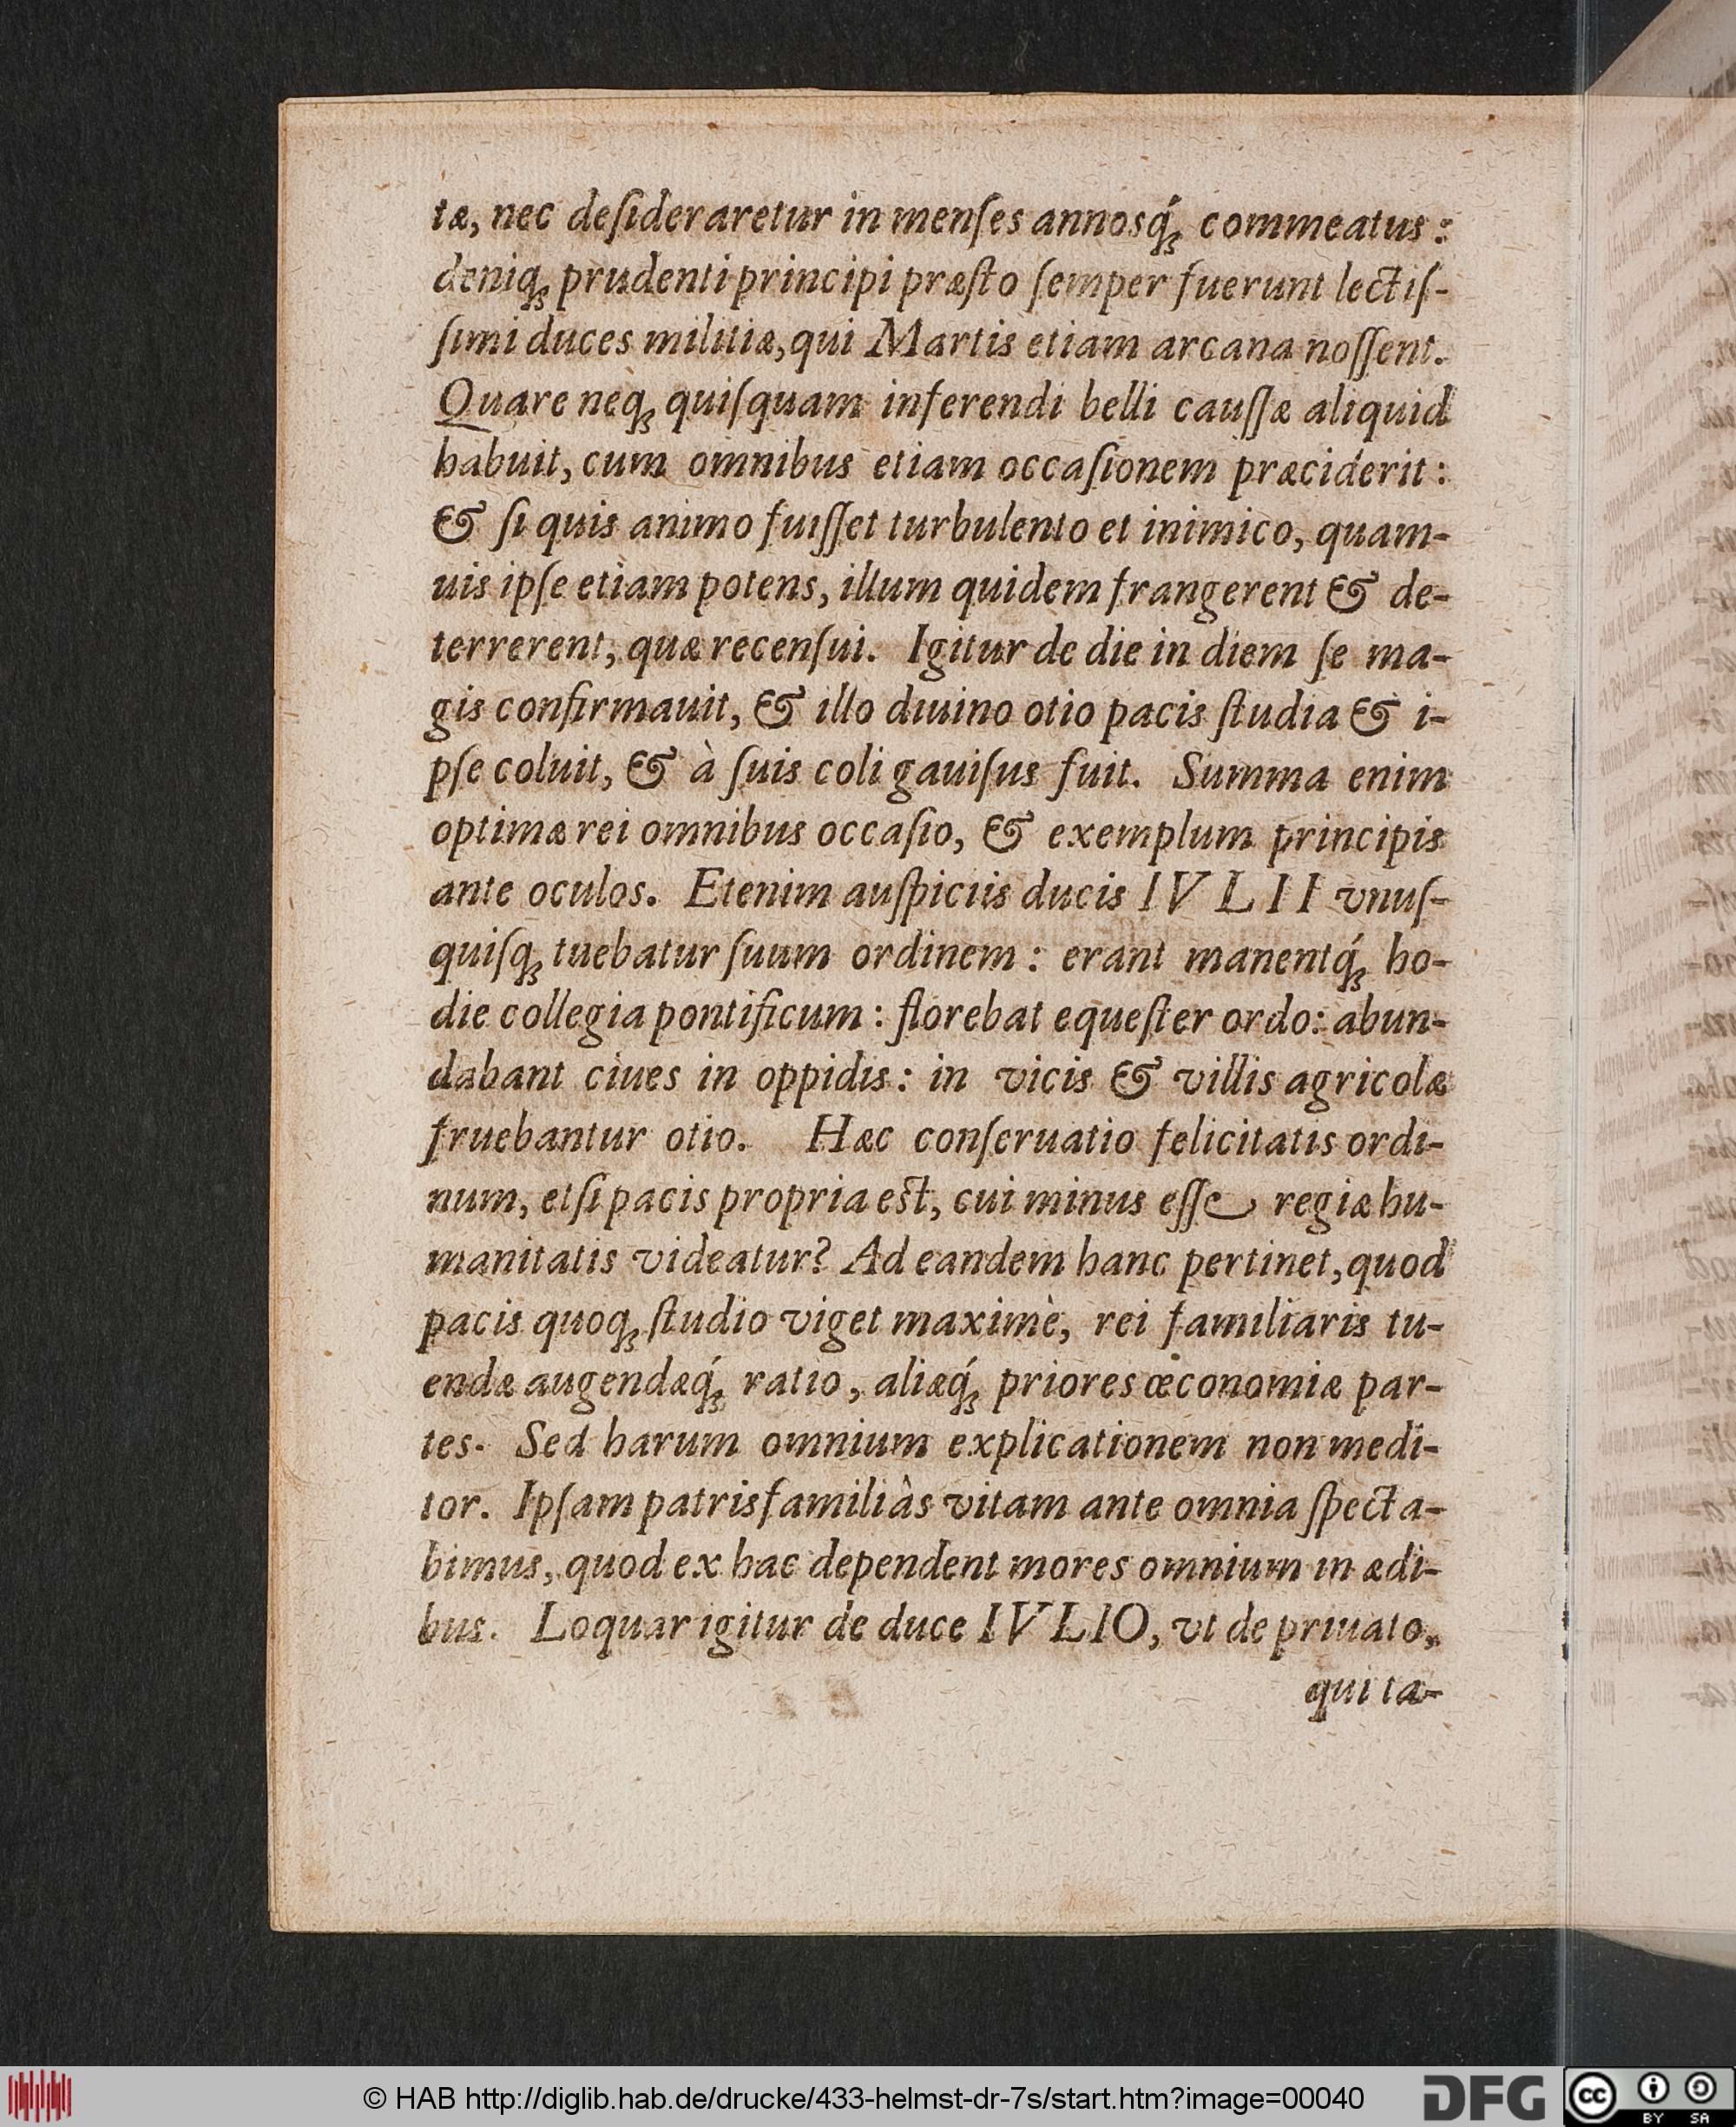 tæ, nec deſideraretur in menſes annosq́; commeatus:
deniq; prudenti principi præſto ſemper fuerunt lectiſ-
ſimi duces militiæ, qui Martis etiam arcana noſſent.
Quare neq; quiſquam inferendi belli cauſſæ aliquid
habuit, cum omnibus etiam occaſionem præciderit:
& ſi quis animo fuiſſet turbulento et inimico, quam-
uis ipſe etiam potens, illum quidem frangerent & de-
terrerent, quæ recenſui. Igitur de die in diem ſe ma-
gis confirmauit, & illo diuino otio pacis ſtudia & i-
pſe coluit, & à ſuis coli gauiſus fuit. Summa enim
optimæ rei omnibus occaſio, & exemplum principis
ante oculos. Etenim auſpiciis ducis IVLII vnuſ-
quiſq; tuebatur ſuum ordinem: erant manentq́; ho-
die collegia pontificum: florebat equeſter ordo: abun-
dabant ciues in oppidis: in vicis & villis agricolæ
fruebantur otio. Hæc conſeruatio felicitatis ordi-
num, etſi pacis propria est, cui minus eſſe regiæ hu-
manitatis videatur? Ad eandem hanc pertinet, quod
pacis quoq; ſtudio viget maximè, rei familiaris tu-
endæ augendæq́; ratio, aliæq́; priores œconomiæ par-
tes. Sed harum omnium explicationem non medi-
tor. Ipſam patrisfamiliâs vitam ante omnia ſpecta-
bimus, quod ex hac dependent mores omnium in ædi-
bus. Loquar igitur de duce IVLIO, vt de priuato,
qui ta-
© HAB http://diglib.hab.de/drucke/433-helmst-dr-7s/start.htm?image=00040
DFG
cc BY SA